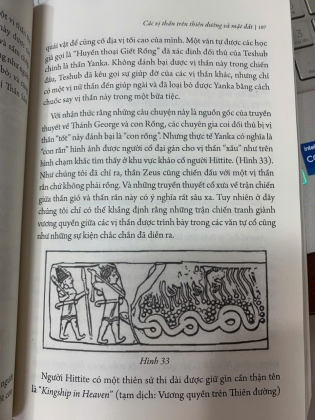 Các vị thần trên thiên đường và mặt đất | 107
quái vật để củng cố địa vị tối cao của mình. Một văn tự được các học
giả gọi là "Huyền thoại Giết Rồng" đã xác định đối thủ của Teshub
chính là thần Yanka. Không đánh bại được vị thần này trong chiến
đấu, Teshub đã kêu gọi sự giúp đỡ của các vị thần khác, nhưng chỉ
có một vị nữ thần đến giúp ngài và đã loại bỏ được Yanka bằng cách
chuốc say vị thần này trong một bữa tiệc.
Với nhận thức rằng những câu chuyện này là nguồn gốc của truyền
thuyết về Thánh George và con Rồng, các chuyên gia coi đối thủ bị vị
thần "tốt" này đánh bại là "con rồng". Nhưng thực tế Yanka có nghĩa là
"con rắn" hình ảnh được người cổ đại gán cho vị thần "xấu" như trên
hình chạm khắc tìm thấy ở khu vực khảo cổ người Hittite. (Hình 33).
Như chúng tôi đã chỉ ra, thần Zeus cũng chiến đấu với một vị thần
rắn chứ không phải rồng. Và những truyền thuyết cổ xưa về trận chiến
giữa thần gió và thần rắn này có ý nghĩa rất sâu xa. Tuy nhiên ở đây
chúng tôi chỉ có thể khẳng định rằng những trận chiến tranh giành
vương quyền giữa các vị thần được trình bày trong các văn tự cổ cũng
như những sự kiện chắc chắn đã diễn ra.
Hình 33
Người Hittite có một thiên sử thi dài được giữ gìn cẩn thận tên
là "Kingship in Heaven" (tạm dịch: Vương quyền trên Thiên đường)